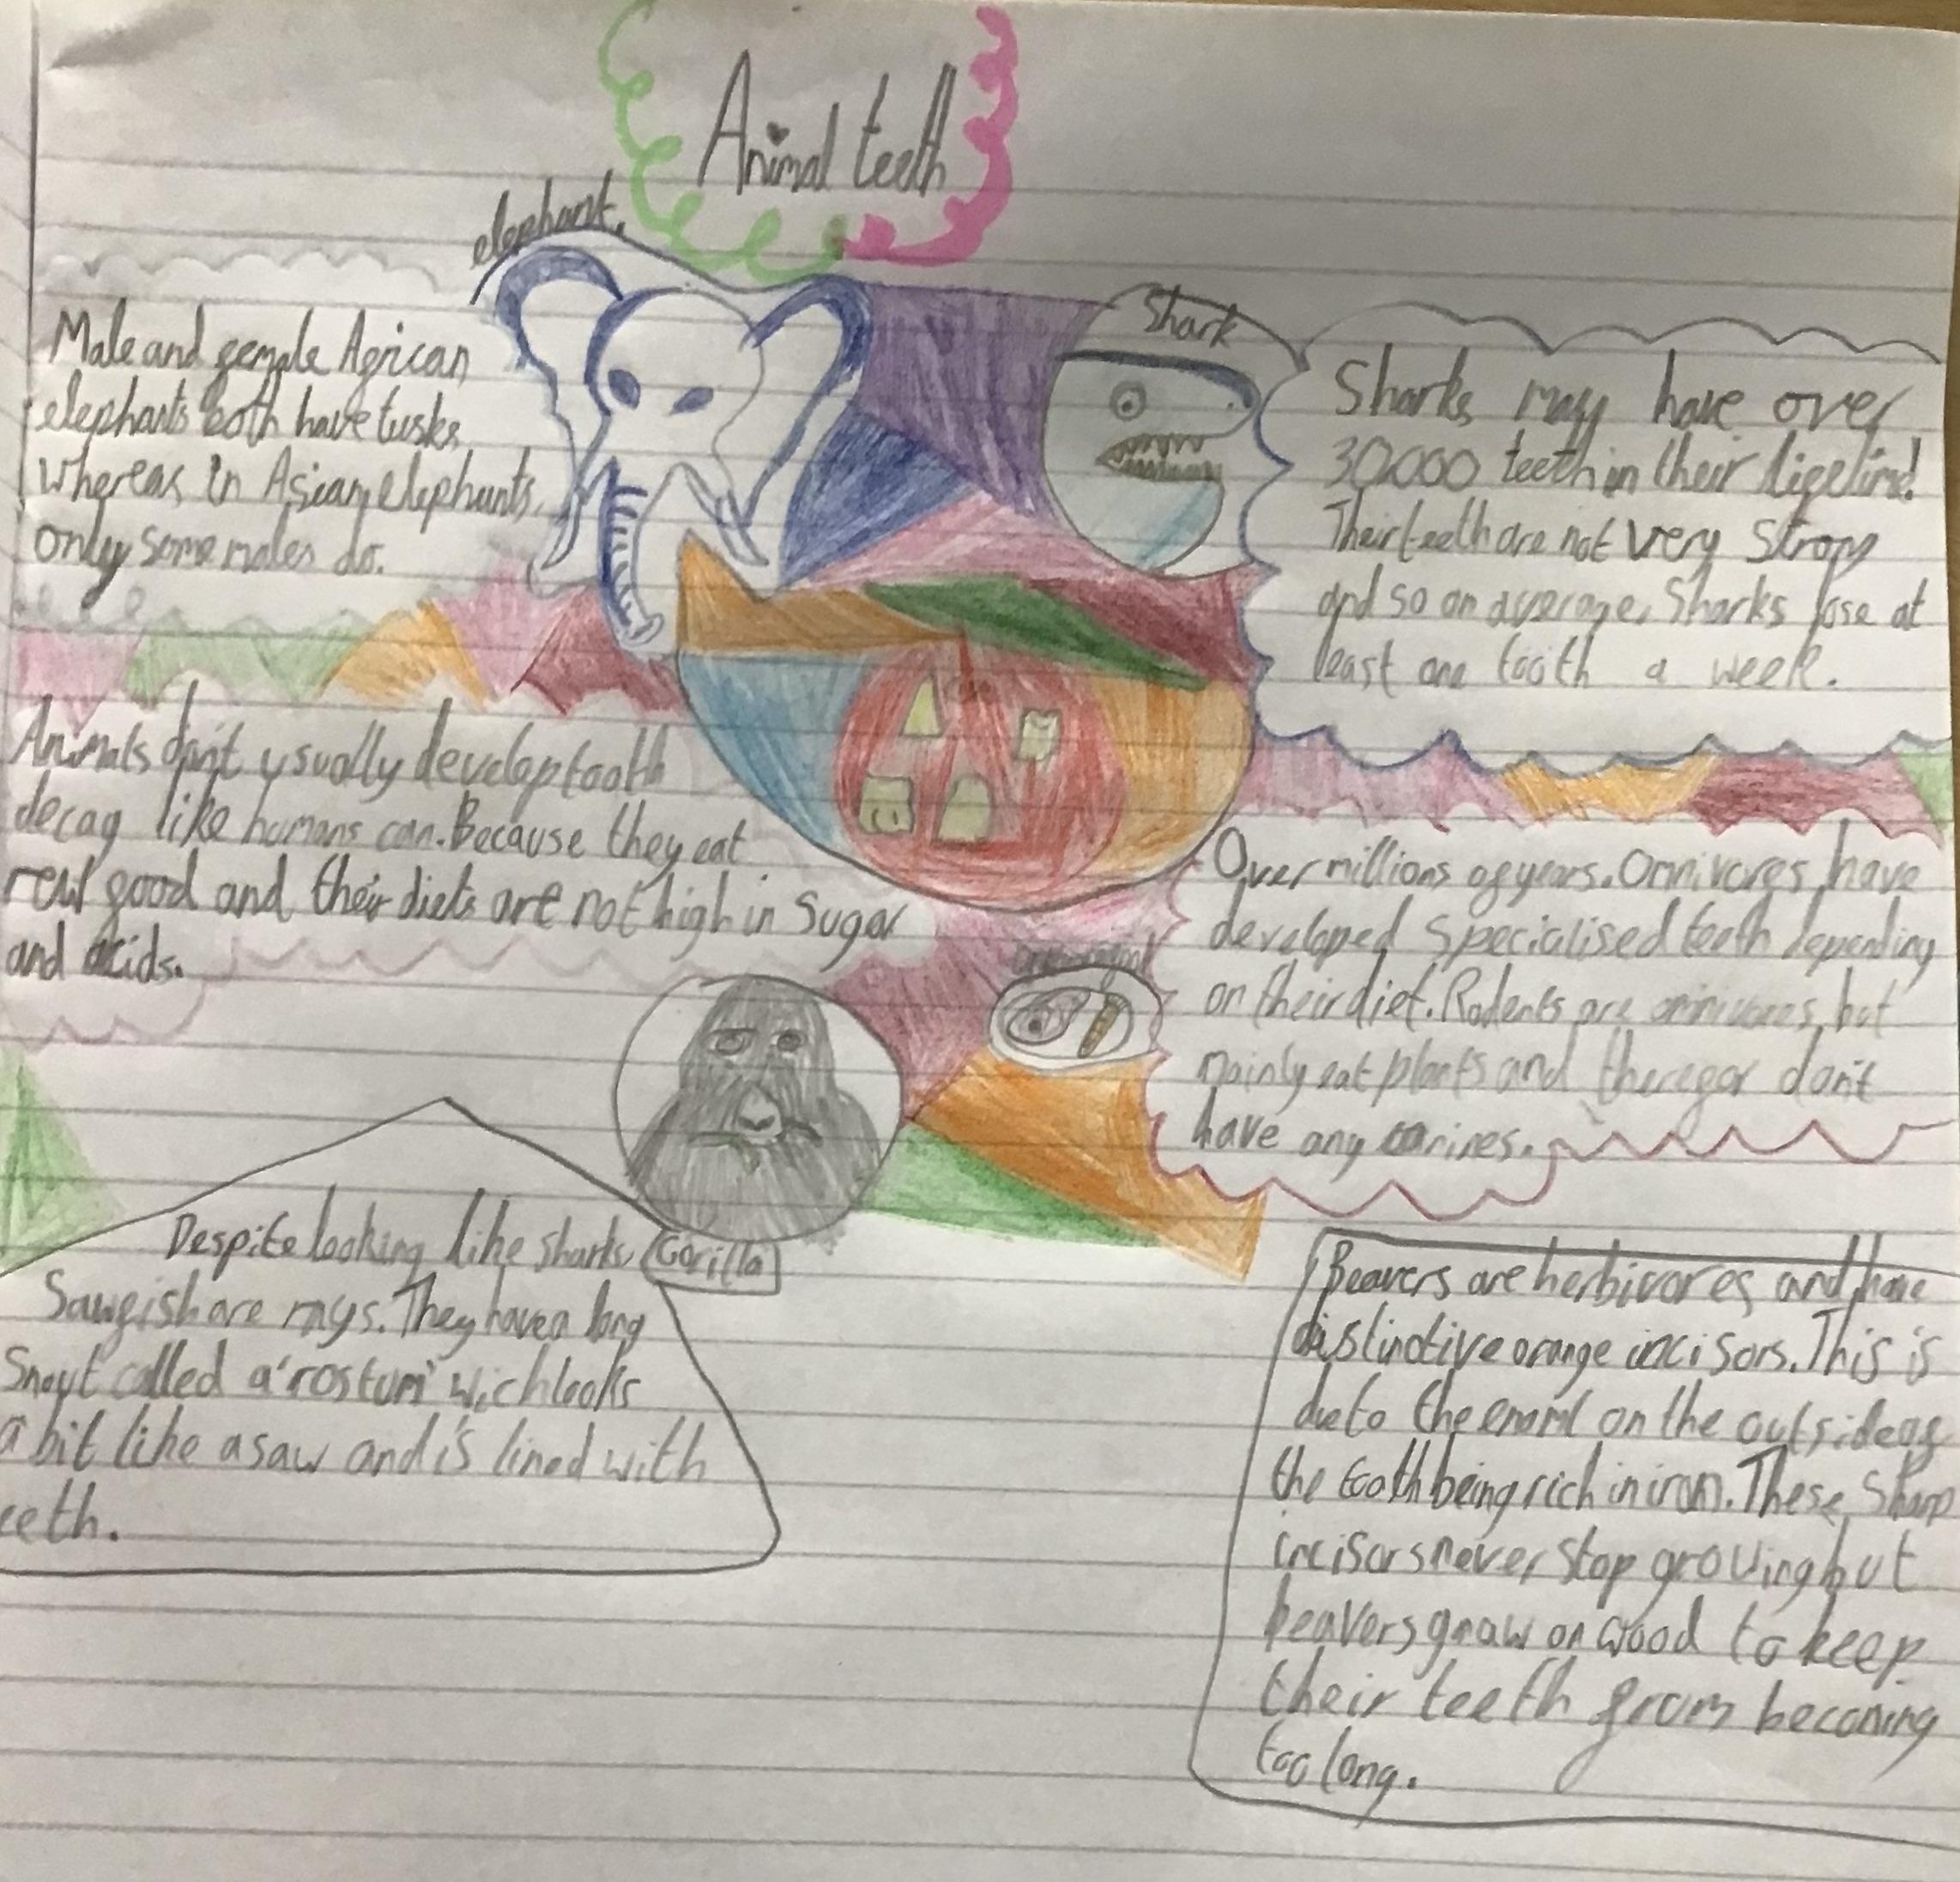 Animal teeth
elephant.
Male and female African
elephants both have tusks
whereas in Asian elephants,
only some males do.
Shark
Sharks may have over
30,000 teeth in their lifetime!
Their teeth are not very strong
and so on average, Sharks lose at
least one tooth a week.
Animals don't usually develop tooth
decay like humans can. Because they eat
raw food and their diets are not high in sugar
and acids.
Over millions of years. Omnivores have
developed specialised teeth depending
on their diet. Rodents are omnivores, but
mainly eat plants and therefor don't
have any canines.
Gorilla
Despite looking like sharks,
Sawfish are rays. They have a long
Snout called a 'rostum' wich looks
a bit like a saw and is lined with
eeth.
Beavers are herbivores and have
distinctive orange incisors. This is
due to the enaml on the outside of
the tooth being rich in iron. These sharp
incisors never stop growing but
beavers gnaw on wood to keep
their teeth from becoming
too long.